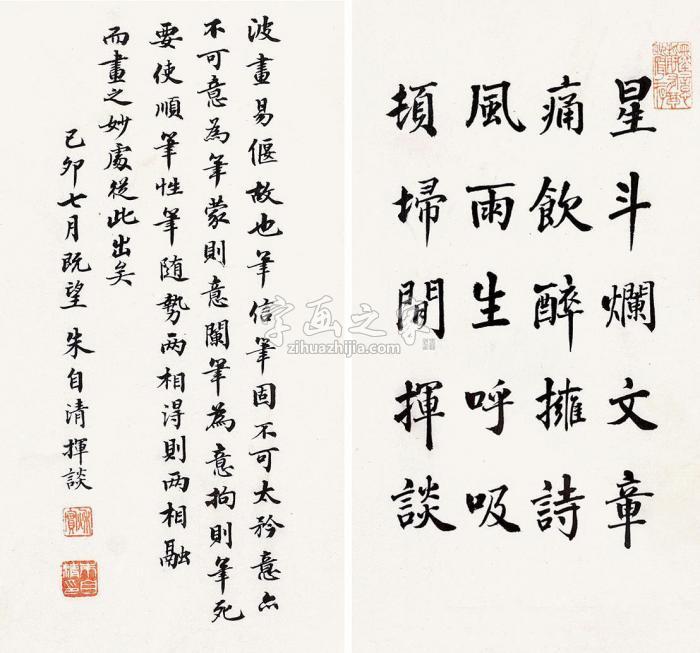 星斗爛文章
痛飲醉擁詩
風雨生呼吸
頓掃間揮談
波畫易偃故也筆信筆固不可太矜意亦
不可意為筆蒙則意闌筆為意拘則筆死
要使順筆性筆隨勢两相得則两相融
而畫之妙處從此出矣
己卯七月既望 朱自清揮談
字画之家
zihuazhijia.com